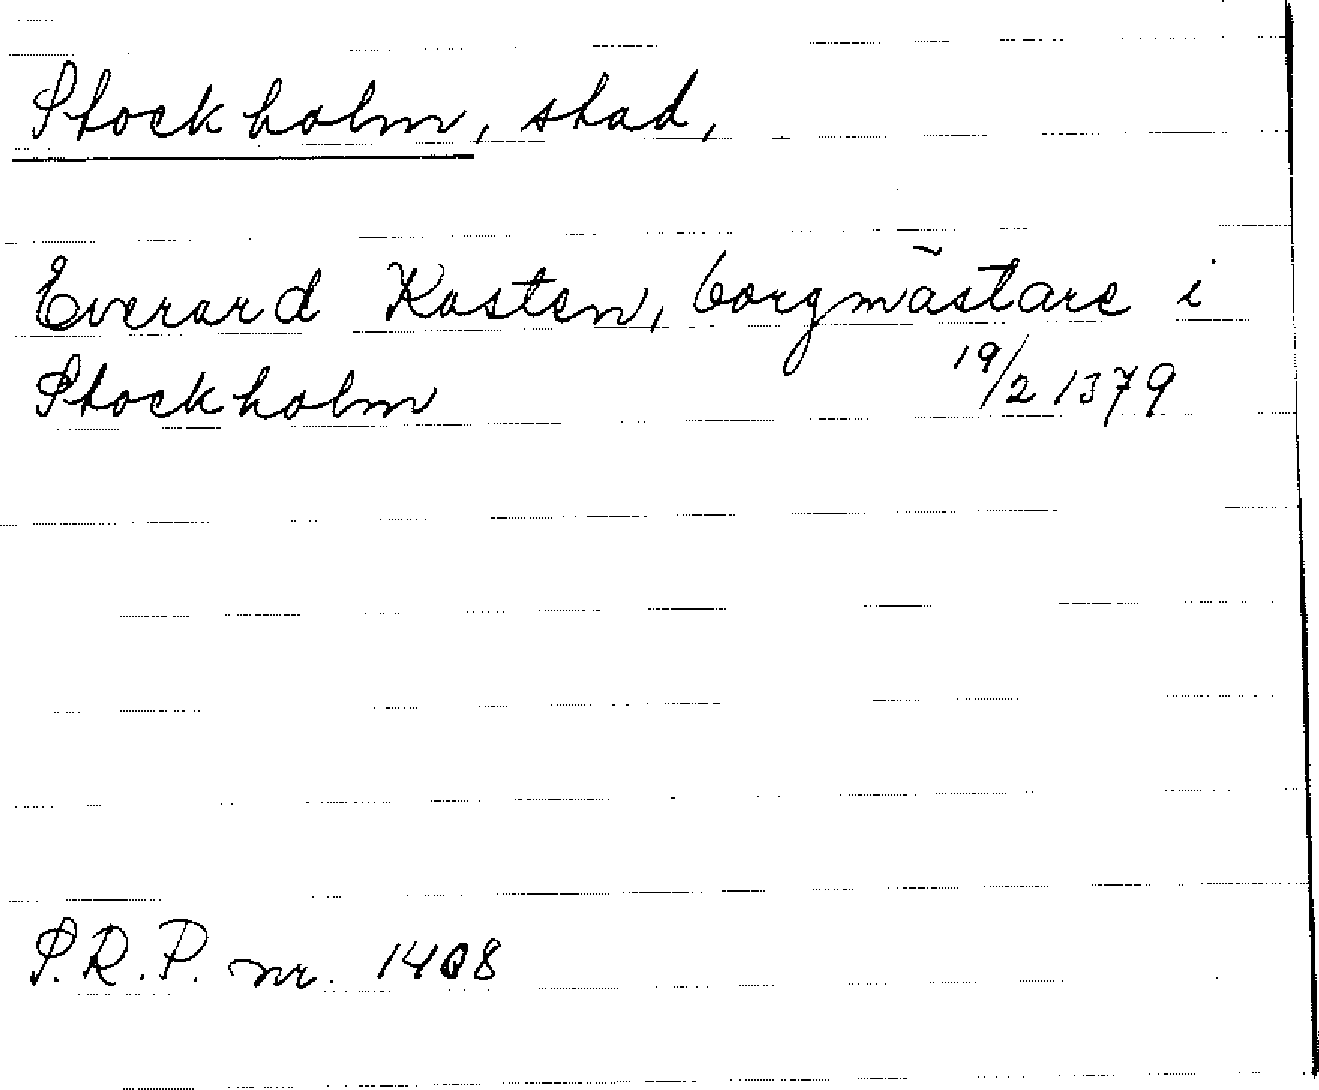 Stockholm, stad,
Everard Kosten, borgmästare i
Stockholm 19/2 1379
S.R.P. nr. 1408